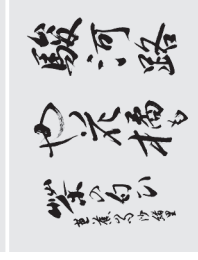 駿河路
や花橘も
茶の匂ひ
芭蕉翁